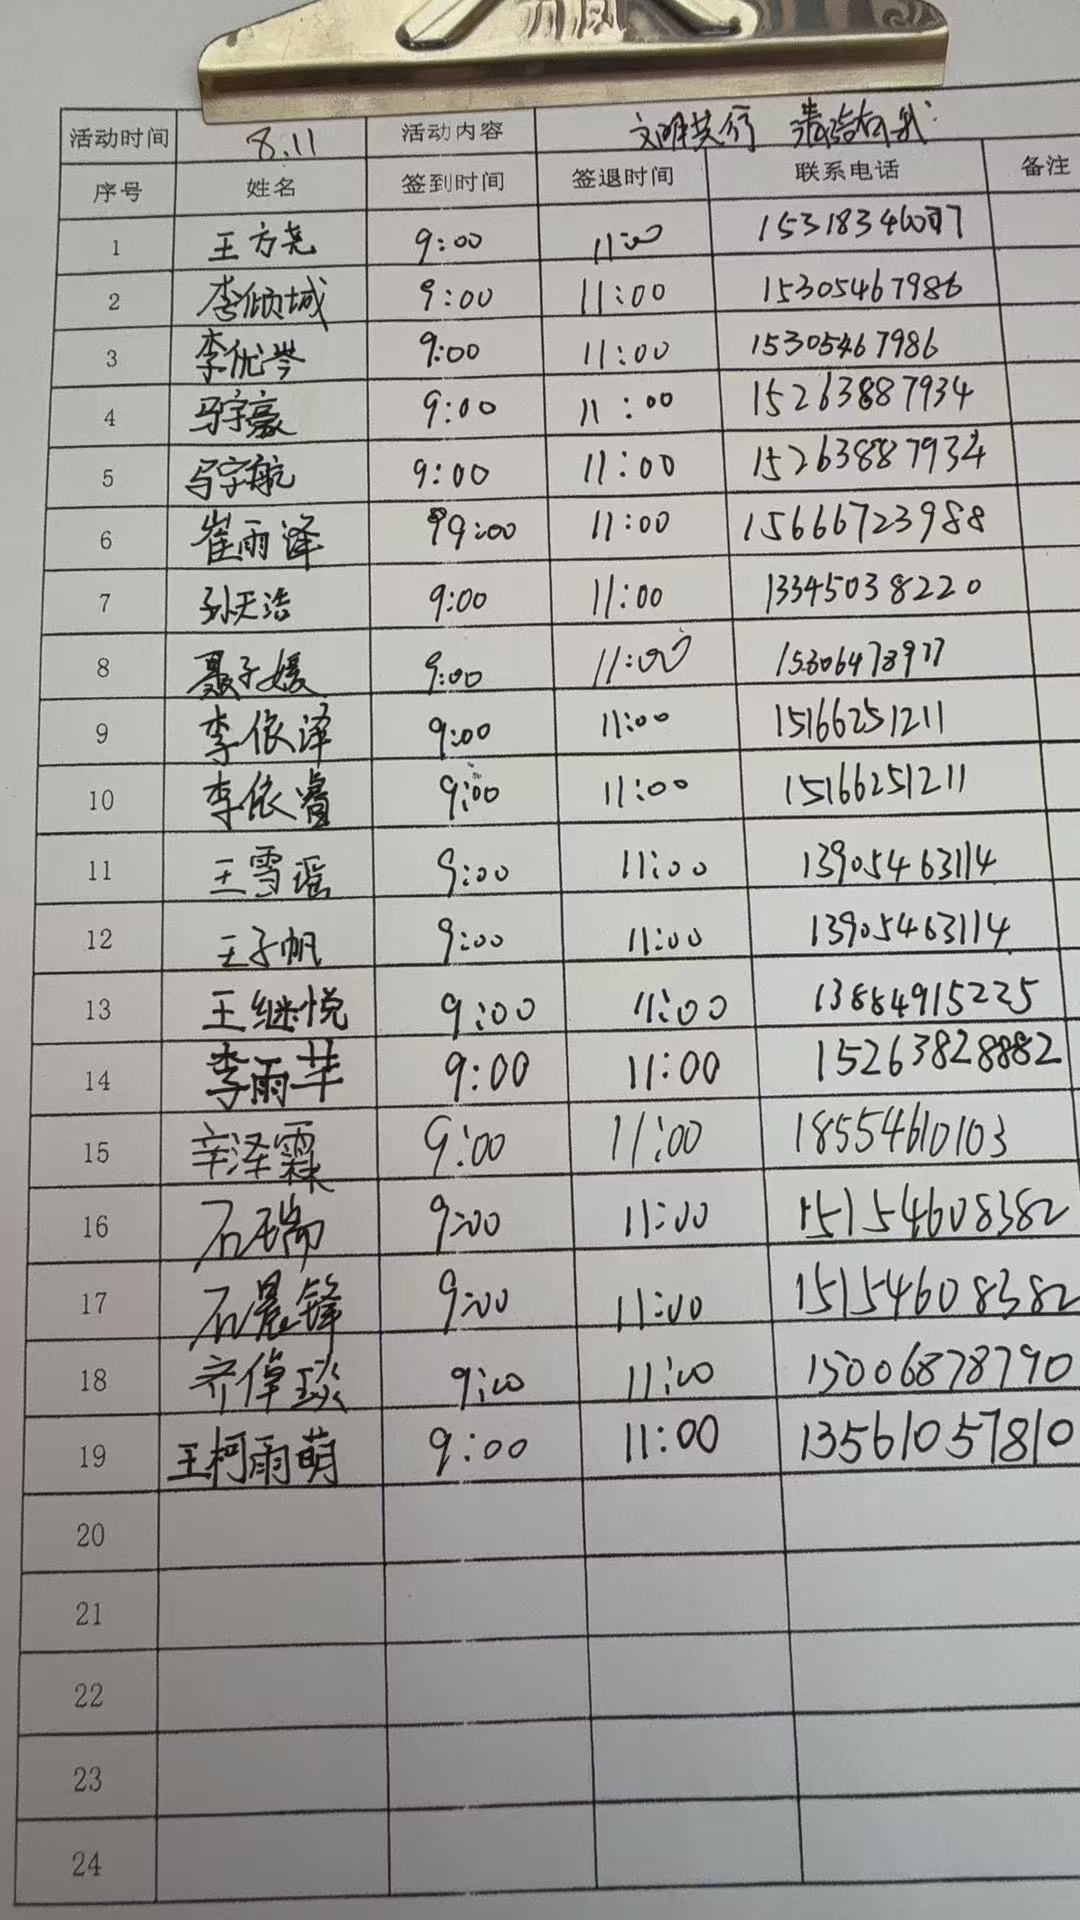 活动时间 8.11 活动内容 文明共行 清洁有我
序号 姓名 签到时间 签退时间 联系电话 备注
1 王方尧 9:00 11:00
2 李倾城 9:00 11:00 15305467986
3 李优岑 9:00 11:00 15305467986
4 马宇豪 9:00 11:00 15263887934
5 马宇航 9:00 11:00 15263887934
6 崔雨泽 9:00 11:00 15666723988
7 孙天浩 9:00 11:00 13345038220
8 聂子媛 9:00 11:00
9 李依泽 9:00 11:00 15166251211
10 李依睿 9:00 11:00 15166251211
11 王雪瑶 9:00 11:00 13905463114
12 王子帆 9:00 11:00 13905463114
13 王继悦 9:00 11:00 13884915225
14 李雨芊 9:00 11:00 15263828882
15 辛泽霖 9:00 11:00 18554610103
16 石瑞 9:00 11:00 15154608382
17 石晨锋 9:00 11:00 15154608382
18 齐倬琰 9:00 11:00 15006878790
19 王柯雨萌 9:00 11:00 13561057810
20
21
22
23
24